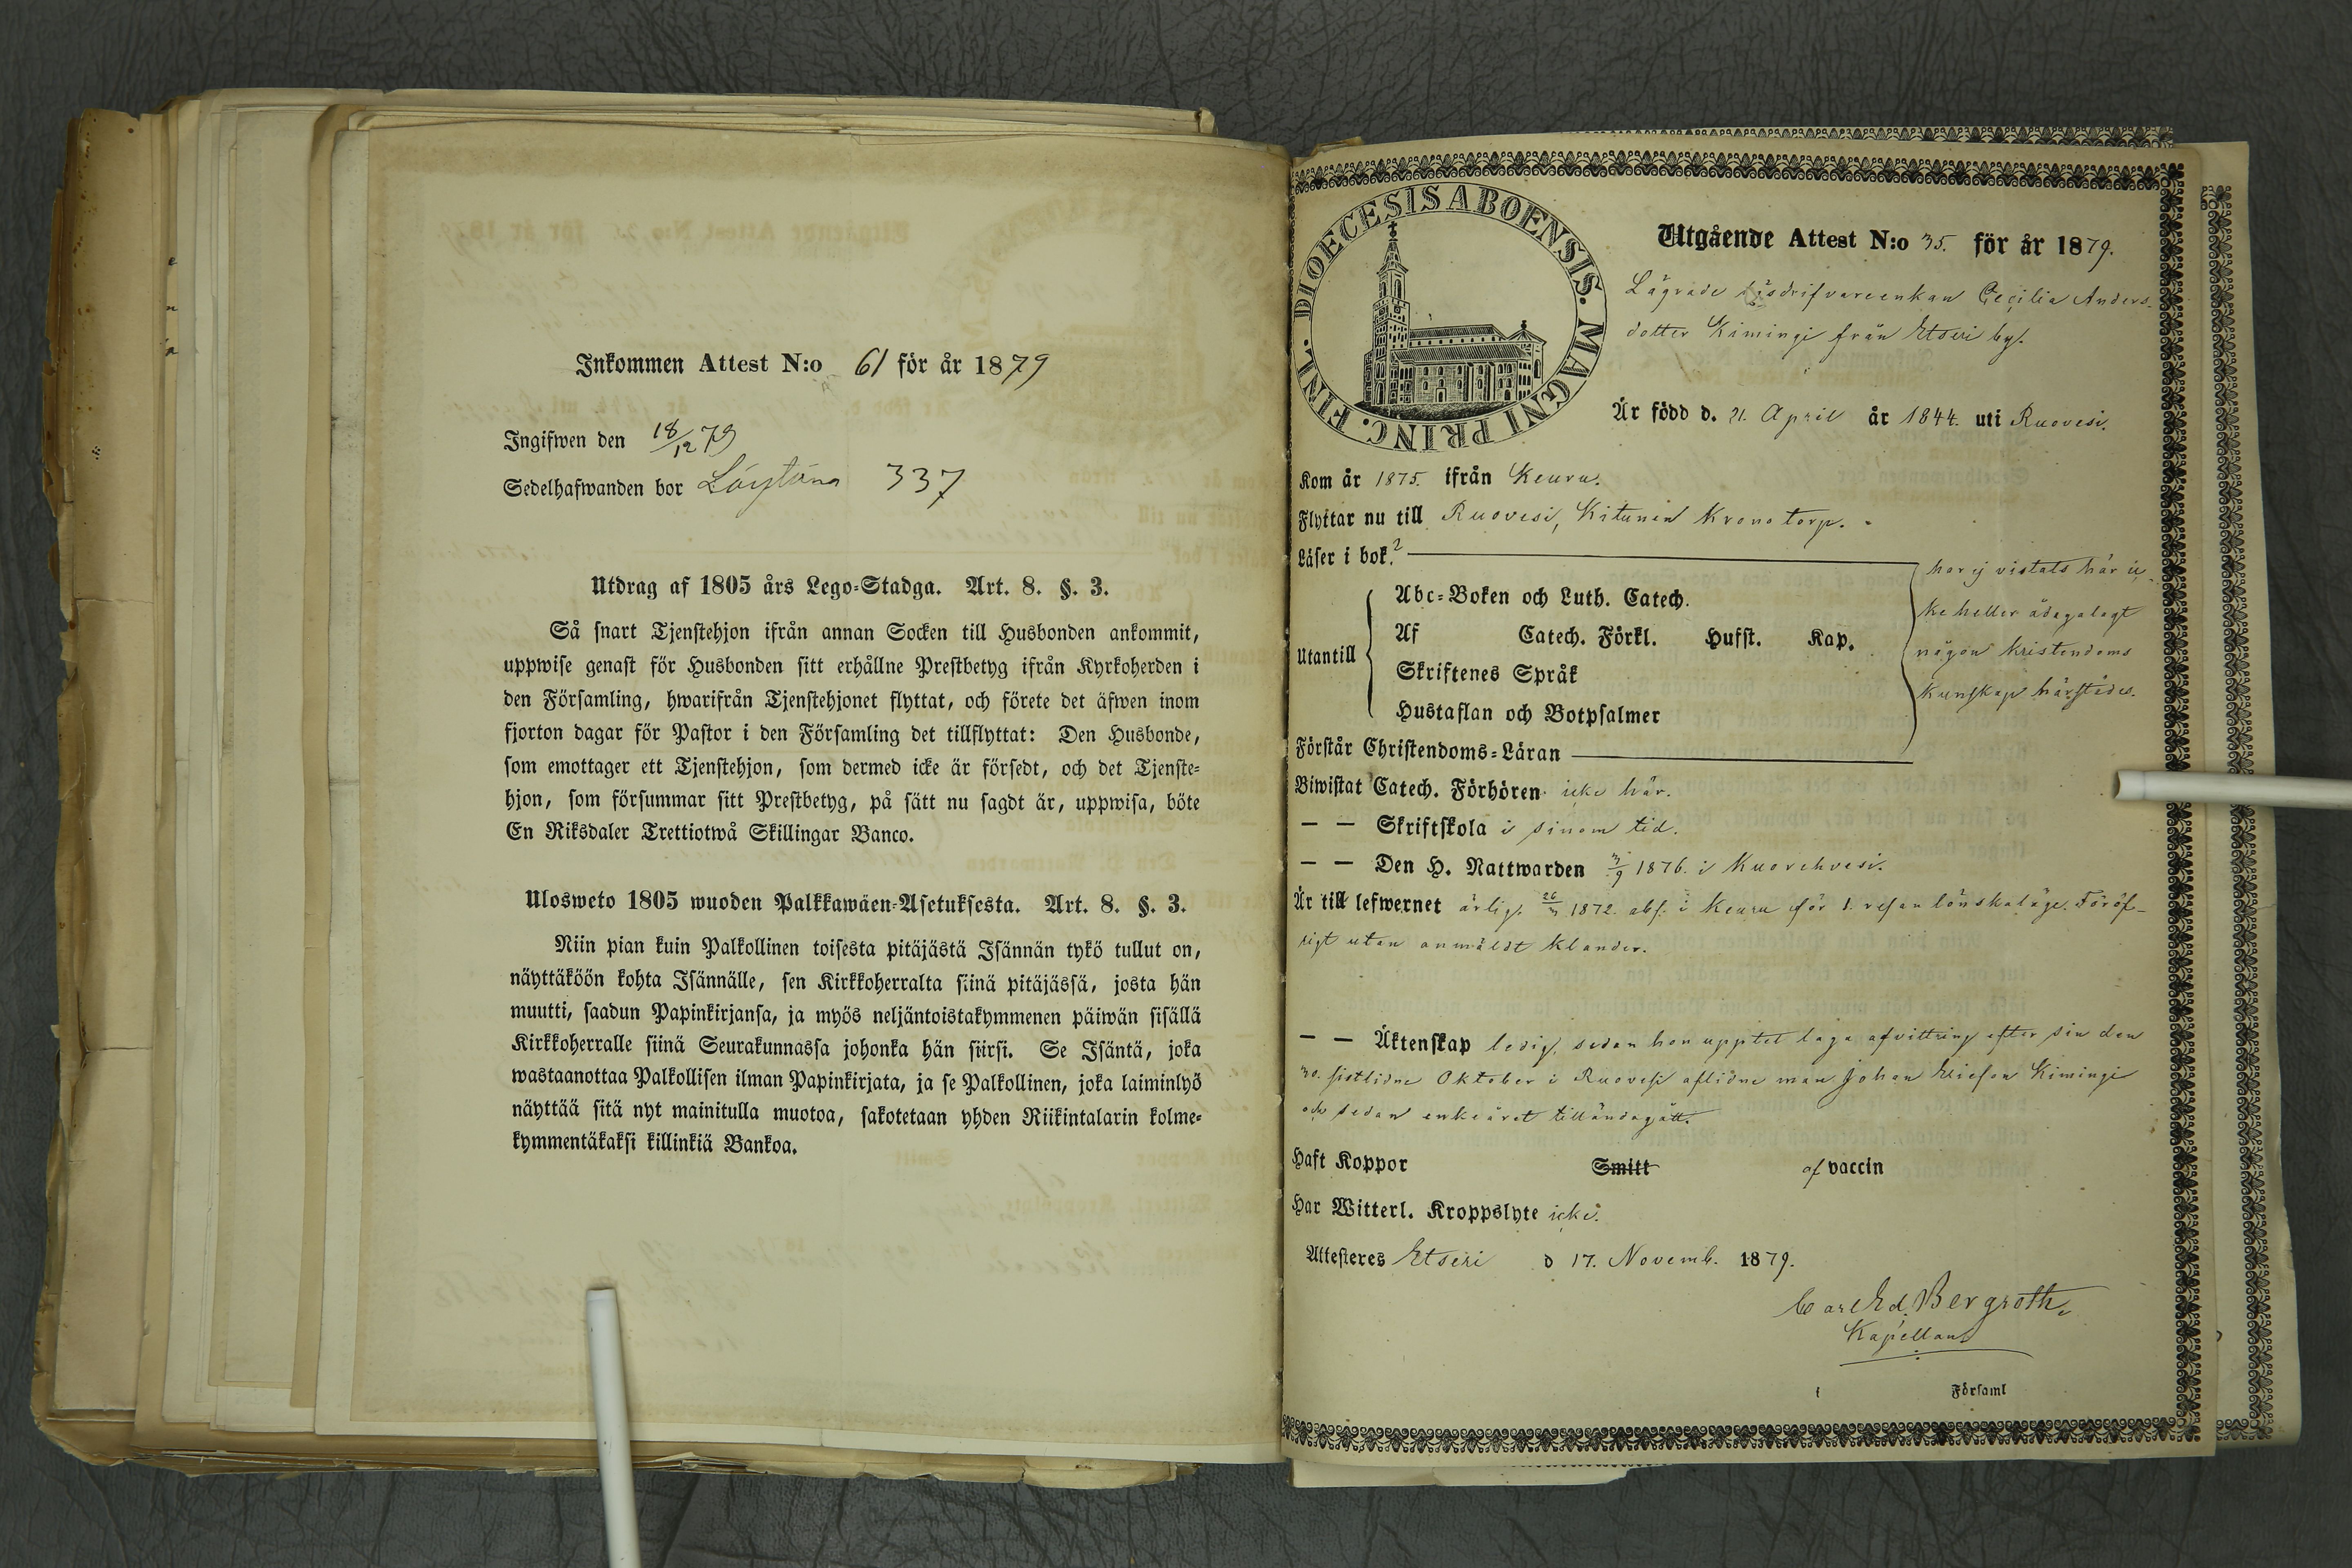 Inkommen Attest N:o 61 för år 1879
Ingifwen den 18/12 79
Sedelhafwanden bor Löytänä 337
Utdrag af 1805 års Lego=Stadga. Art. 8. §. 3.
Så snart Tjenstehjon ifrån annan Socken till Husbonden ankommit,
uppwise genast för Husbonden sitt erhållne Prestbetyg ifrån Kyrkoherden i
den Församling, hwarifrån Tjenstehjonet flyttat, och förete det äfwen inom
fjorton dagar för Pastor i den Församling det tillflyttat: Den Husbonde,
som emottager ett Tjenstehjon, som dermed icke är försedt, och det Tjenste=
hjon, som försummar sitt Prestbetyg, på sätt nu sagdt är, uppwisa, böte
En Riksdaler Trettiotwå Skillingar Banco.
Ulosweto 1805 wuoden Palkkawäen=Asetuksesta. Art. 8. §. 3.
Niin pian kuin Palkollinen toisesta pitäjästä Isännän tykö tullut on,
näyttäköön kohta Isännälle, sen Kirkkoherralta siinä pitäjässä, josta hän
muutti, saadun Papinkirjansa, ja myös neljäntoistakymmenen päiwän sisällä
Kirkkoherralle siinä Seurakunnassa johonka hän siirsi. Se Isäntä, joka
wastaanottaa Palkollisen ilman Papinkirjata, ja se Palkollinen, joka laiminlyö
näyttää sitä nyt mainitulla muotoa, sakotetaan yhden Riikintalarin kolme=
kymmentäkaksi killinkiä Bankoa.
DIOECESIS ABOENSIS. MAGNI PRINC. FINL.
Utgående Attest N:o 35. för år 1879.
Cecilia Anders-
dotter Kimingi från Etseri by.
Är född d. 21. April år 1844. uti Ruovesi.
Kom år 1875. ifrån Keuru.
Flyttar nu till Ruovesi, Kitunen Kronotorp.
Läser i bok?
Utantill
Abc=Boken och Luth. Catech.
Af Catech. Förkl. Hufst. Kap.
Skriftenes Språk
Hustaflan och Botpsalmer
har ej vistats här ic-
ke heller ådagalagt
någon kristendoms
kunskap härstädes.
Förstår Christendoms=Läran
Biwistat Catech. Förhören icke här.
— — Skriftskola i sinom tid.
— — Den H. Nattwarden /9 1876. i Kuorehvesi.
Är till lefwernet ärlig. 1872. abs. i Keuru för 1. resan lönskaläge. Föröf-
rigt utan anmäldt klander.
— — Äktenskap ledig, sedan hon upptet laga afvittring efter sin den
30. sistlidne Oktober i Ruovesi aflidne man Johan Ericson Kimingi
och sedan enkeåret tilländagått.
Haft Koppor Smitt af vaccin
Har Witterl. Kroppslyte icke.
Attesteres Etseri d 17. Novemb. 1879.
Carl Ed. Bergroth.
Kapellan
i Församl